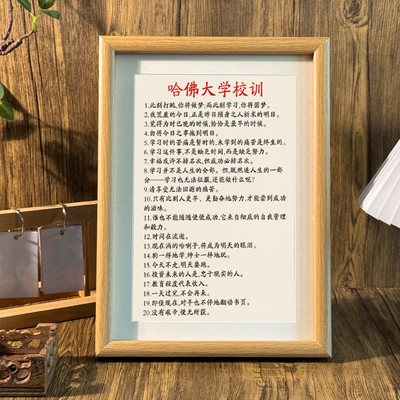 哈佛大学校训
1.此刻打盹,你将做梦;而此刻学习,你将圆梦。
2.我荒废的今日,正是昨日殒身之人祈求的明日。
3.觉得为时已晚的时候,恰恰是最早的时候。
4.勿将今日之事拖到明日。
5.学习时的苦痛是暂时的,未学到的痛苦是终生的。
6.学习这件事,不是缺乏时间,而是缺乏努力。
7.幸福或许不排名次,但成功必排名次。
8.学习并不是人生的全部。但,既然连人生的一部
分——学习也无法征服,还能做什么呢?
9.请享受无法回避的痛苦。
10.只有比别人更早、更勤奋地努力,才能尝到成功
的滋味。
11.谁也不能随随便便成功,它来自彻底的自我管理
和毅力。
12.时间在流逝。
13.现在淌的哈喇子,将成为明天的眼泪。
14.狗一样地学,绅士一样地玩。
15.今天不走,明天要跑。
16.投资未来的人是,忠于现实的人。
17.教育程度代表收入。
18.一天过完,不会再来。
19.即使现在,对手也不停地翻动书页。
20.没有艰辛,便无所获。